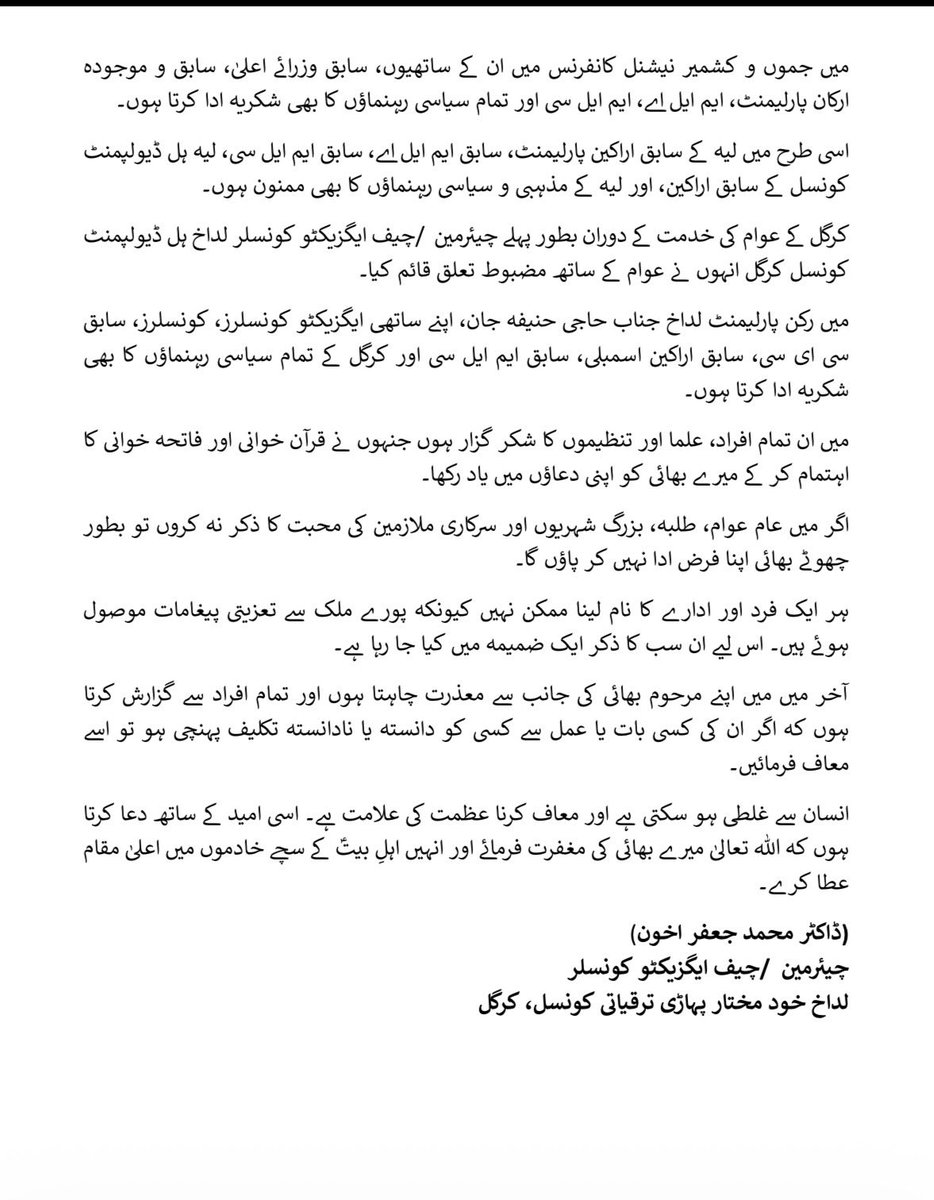 میں جموں و کشمیر نیشنل کانفرنس میں ان کے ساتھیوں، سابق وزرائے اعلیٰ، سابق و موجودہ
ارکان پارلیمنٹ، ایم ایل اے، ایم ایل سی اور تمام سیاسی رہنماؤں کا بھی شکریہ ادا کرتا ہوں۔
اسی طرح میں لیہ کے سابق اراکین پارلیمنٹ، سابق ایم ایل اے، سابق ایم ایل سی، لیہ ہل ڈیولپمنٹ
کونسل کے سابق اراکین، اور لیہ کے مذہبی و سیاسی رہنماؤں کا بھی ممنون ہوں۔
کرگل کے عوام کی خدمت کے دوران بطور پہلے چیئرمین /چیف ایگزیکٹو کونسلر لداخ ہل ڈیولپمنٹ
کونسل کرگل انہوں نے عوام کے ساتھ مضبوط تعلق قائم کیا۔
میں رکن پارلیمنٹ لداخ جناب حاجی حنیفہ جان، اپنے ساتھی ایگزیکٹو کونسلرز، کونسلرز، سابق
سی ای سی، سابق اراکین اسمبلی، سابق ایم ایل سی اور کرگل کے تمام سیاسی رہنماؤں کا بھی
شکریہ ادا کرتا ہوں۔
میں ان تمام افراد، علما اور تنظیموں کا شکر گزار ہوں جنہوں نے قرآن خوانی اور فاتحہ خوانی کا
اہتمام کر کے میرے بھائی کو اپنی دعاؤں میں یاد رکھا۔
اگر میں عام عوام، طلبہ، بزرگ شہریوں اور سرکاری ملازمین کی محبت کا ذکر نہ کروں تو بطور
چھوٹے بھائی اپنا فرض ادا نہیں کر پاؤں گا۔
ہر ایک فرد اور ادارے کا نام لینا ممکن نہیں کیونکہ پورے ملک سے تعزیتی پیغامات موصول
ہوئے ہیں۔ اس لیے ان سب کا ذکر ایک ضمیمہ میں کیا جا رہا ہے۔
آخر میں میں اپنے مرحوم بھائی کی جانب سے معذرت چاہتا ہوں اور تمام افراد سے گزارش کرتا
ہوں کہ اگر ان کی کسی بات یا عمل سے کسی کو دانستہ یا نادانستہ تکلیف پہنچی ہو تو اسے
معاف فرمائیں۔
انسان سے غلطی ہو سکتی ہے اور معاف کرنا عظمت کی علامت ہے۔ اسی امید کے ساتھ دعا کرتا
ہوں کہ اللہ تعالیٰ میرے بھائی کی مغفرت فرمائے اور انہیں اہلِ بیتؑ کے سچے خادموں میں اعلیٰ مقام
عطا کرے۔
(ڈاکٹر محمد جعفر اخون)
چیئرمین /چیف ایگزیکٹو کونسلر
لداخ خود مختار پہاڑی ترقیاتی کونسل، کرگل